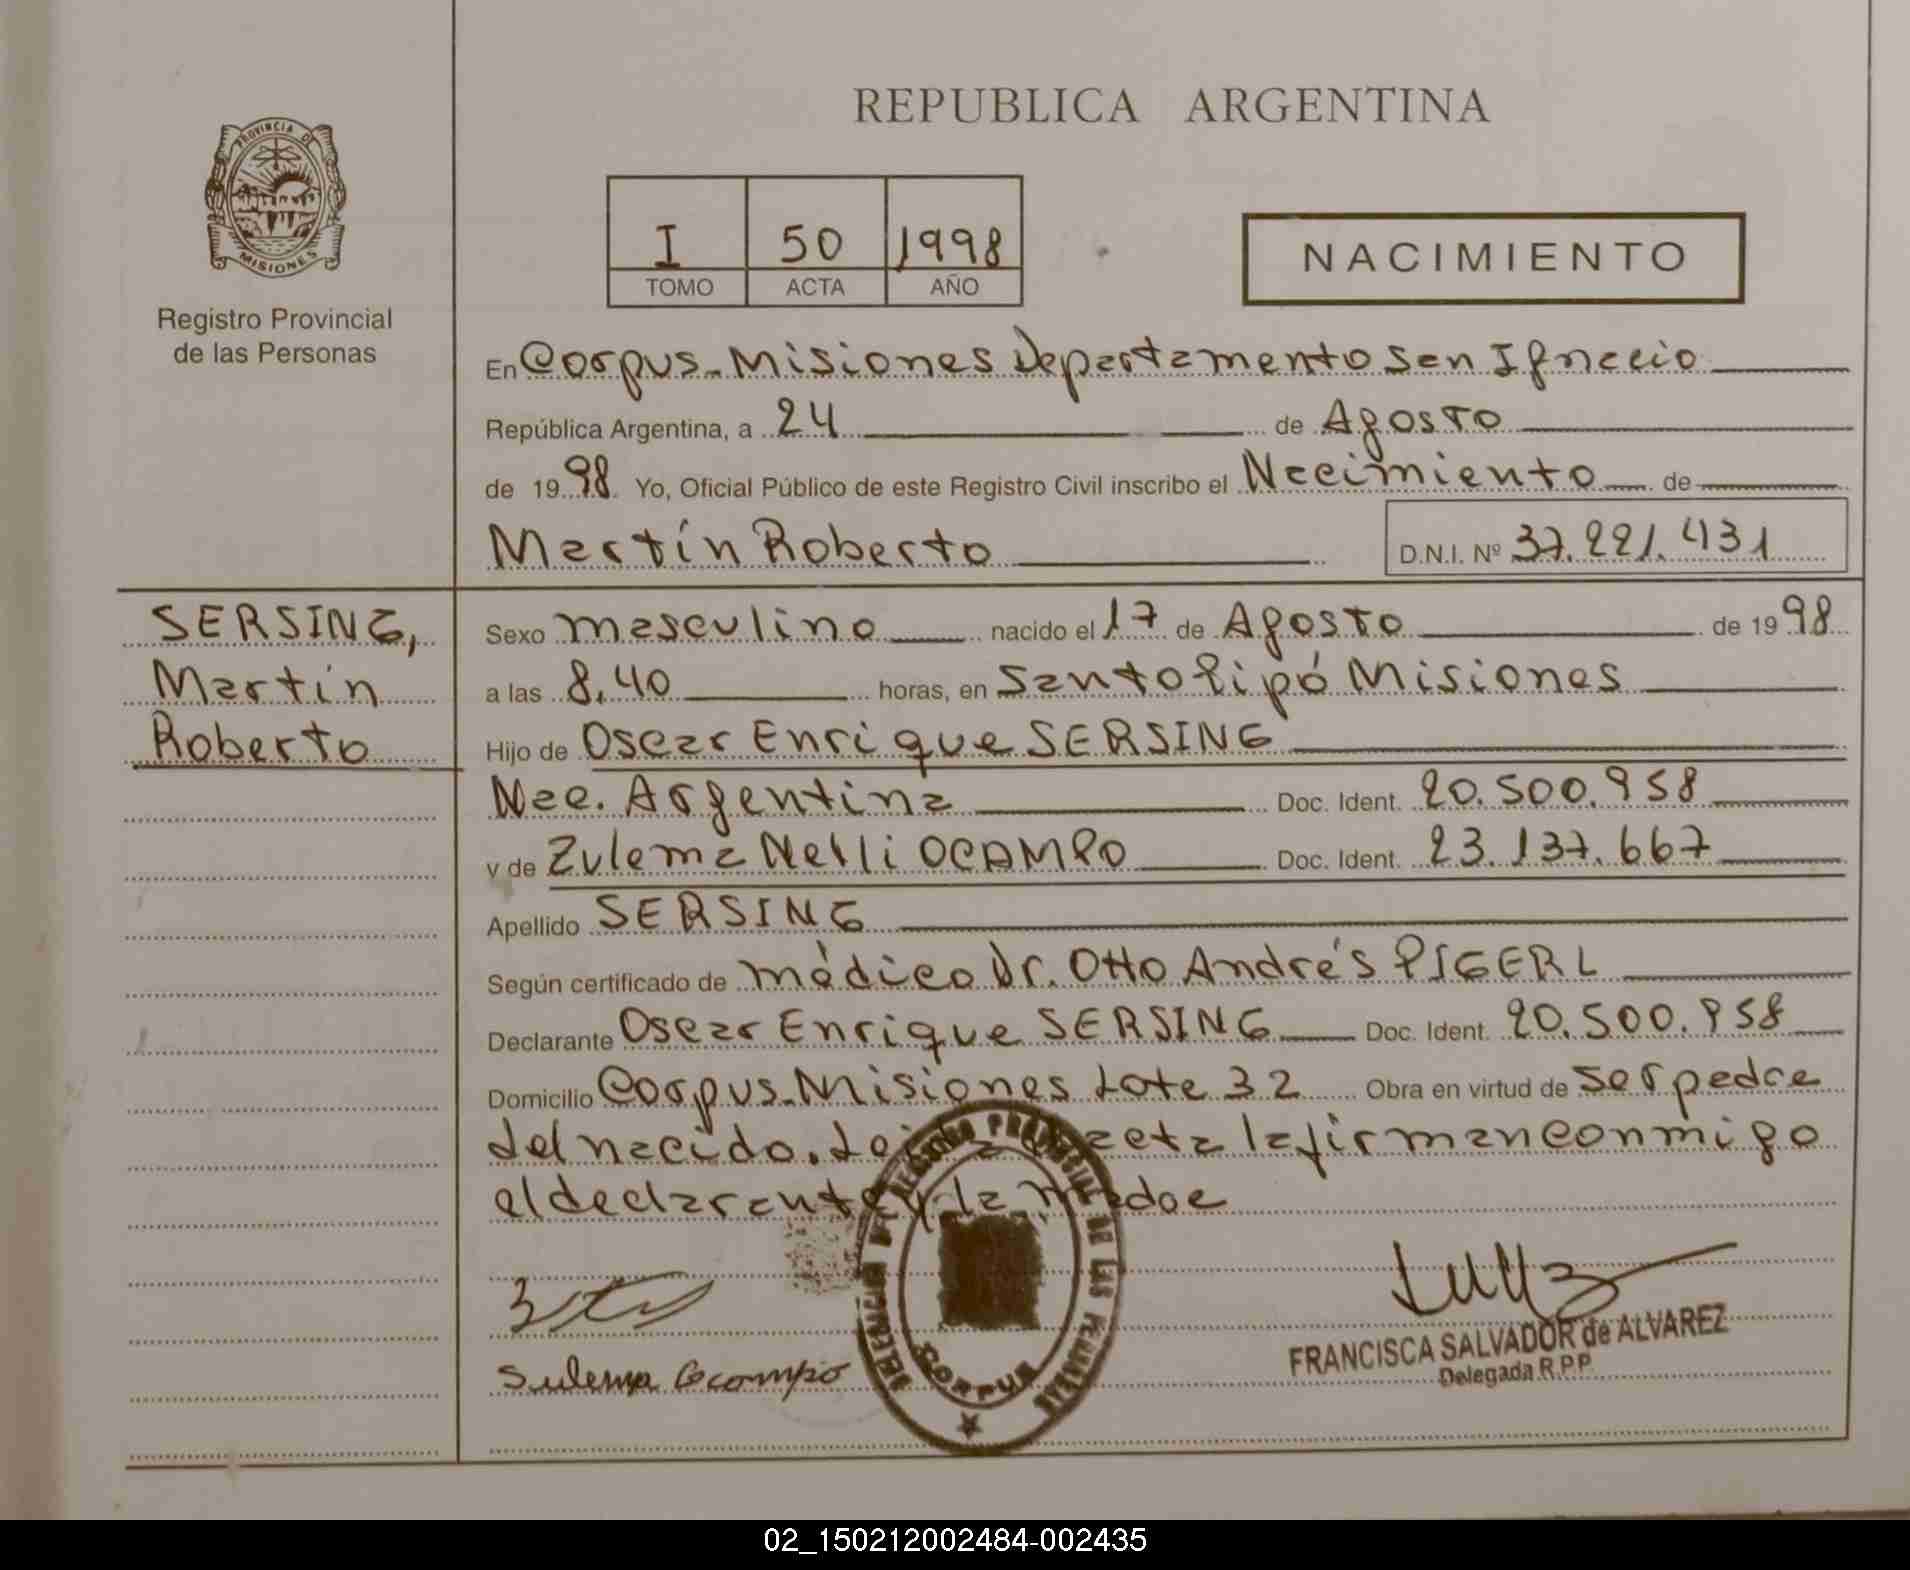 REPUBLICA ARGENTINA
PROVINCIA DE MISIONES
Registro Provincial
de las Personas
I 50 1998
TOMO ACTA AÑO
NACIMIENTO
En Corpus-Misiones Departamento San Ignacio
República Argentina, a 24 de Agosto
de 1998 Yo, Oficial Público de este Registro Civil inscribo el Nacimiento de
Martín Roberto D.N.I. Nº 37.221.431
SERSING,
Martín
Roberto
Sexo masculino nacido el 17 de Agosto de 1998
a las 8,40 horas, en Santo Pipó Misiones
Hijo de Oscar Enrique SERSING
Nac. Argentina Doc. Ident. 20.500.958
y de Zulema Nelli OCAMPO Doc. Ident. 23.137.667
Apellido SERSING
Según certificado de médico Dr. Otto Andrés PIGERL
Declarante Oscar Enrique SERSING Doc. Ident. 20.500.958
Domicilio Corpus-Misiones Lote 32 Obra en virtud de ser padre
del nacido. Leída acta la firman conmigo
el declarante y la madre
DELEGACION DEL REGISTRO PROVINCIAL DE LAS PERSONAS
CORPUS
Sulema Ocampo
FRANCISCA SALVADOR de ALVAREZ
Delegada R.P.P.
02_150212002484-002435